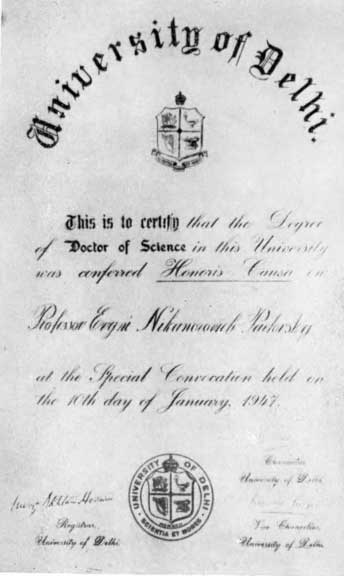 University of Delhi.
This is to certify that the Degree
of Doctor of Science in this University
was conferred Honoris Causa on
Professor Evgni Nikanorovich Pavlovsky
at the Special Convocation held on
the 10th day of January, 1947.
UNIVERSITY OF DELHI
SCIENTIA ET MORES
Registrar,
University of Delhi
Chancellor
University of Delhi
Vice Chancellor
University of Delhi